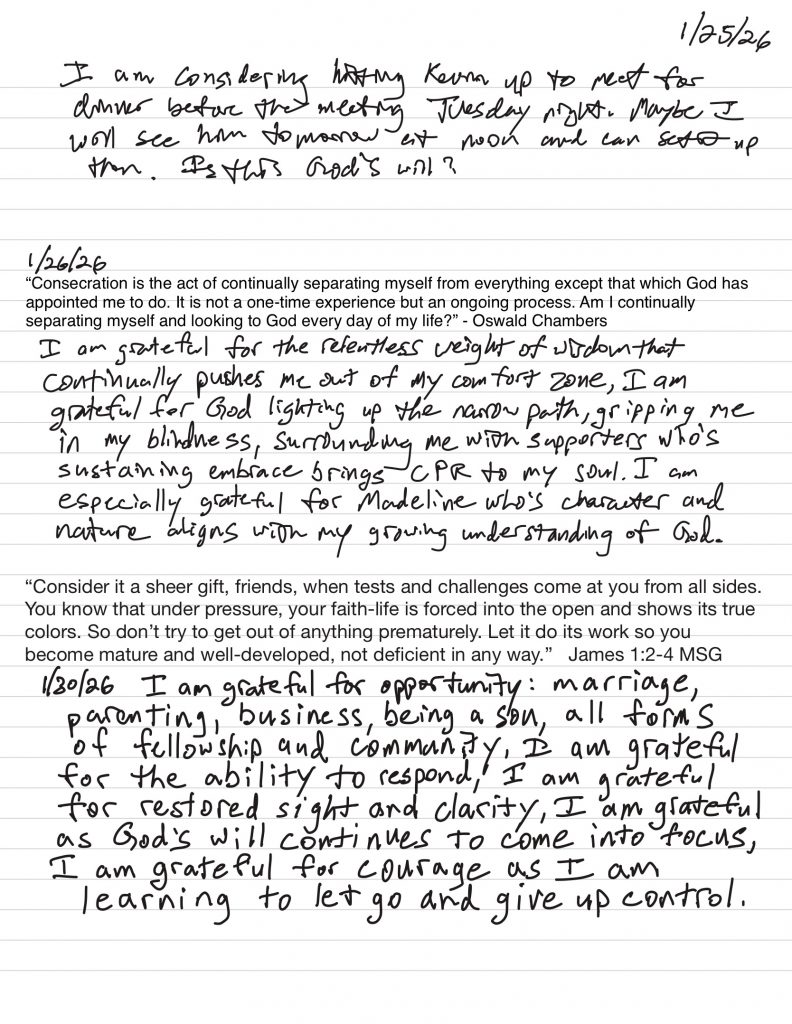 1/25/26
I am considering hitting Kevin up to meet for
dinner before the meeting Tuesday night. Maybe I
will see him tomorrow at noon and can set up
then. Is this God's will?
1/26/26
“Consecration is the act of continually separating myself from everything except that which God has
appointed me to do. It is not a one-time experience but an ongoing process. Am I continually
separating myself and looking to God every day of my life?” - Oswald Chambers
I am grateful for the relentless weight of wisdom that
continually pushes me out of my comfort zone, I am
grateful for God lighting up the narrow path, gripping me
in my blindness, surrounding me with supporters who's
sustaining embrace brings CPR to my soul. I am
especially grateful for Madeline who's character and
nature aligns with my growing understanding of God.
“Consider it a sheer gift, friends, when tests and challenges come at you from all sides.
You know that under pressure, your faith-life is forced into the open and shows its true
colors. So don’t try to get out of anything prematurely. Let it do its work so you
become mature and well-developed, not deficient in any way.” James 1:2-4 MSG
1/30/26 I am grateful for opportunity: marriage,
parenting, business, being a son, all forms
of fellowship and community, I am grateful
for the ability to respond, I am grateful
for restored sight and clarity, I am grateful
as God's will continues to come into focus,
I am grateful for courage as I am
learning to let go and give up control.